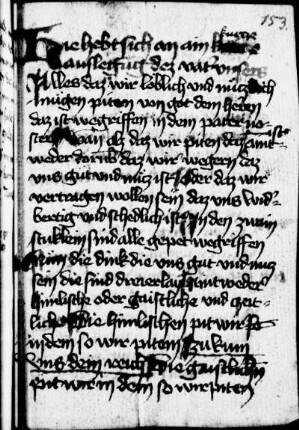 153.
Hie hebt sich an ain kurcze
auslegung dez vater unsers
Alles daz wir loblich und nuczlich
mugen piten von got dem herren
daz ist wegriffen in dem pater no-
ster wan alz daz wir piten daz ist aint-
weder darumb daz wir wegern daz
uns gut und nucz ist oder daz wir
vertragen wollen sein daz uns wid-
bertig und schedlich ist in den zwain
stuklein sind alle gepet wegriffen
die dink die uns gut und nucz
sein die sind dreyerlay aintweder
himlische oder gaistliche und zeit-
liche die himlischen pit wir
in dem so wir piten zu kum
uns dein reich Die gaistlichen
pit wir in dem so wir piten